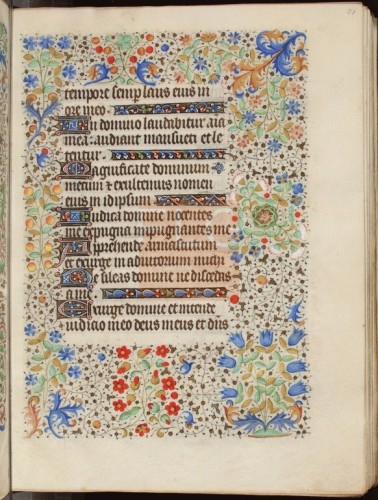 tempore semp laus eius in
ore meo.
In domino laudabitur aīa
mea: audiant mansueti et le
tentur.
Magnificate dominum
mecum & exultemus nomen
eius in idipsum
Iudica domine nocentes
me expugna impugnantes me
Apprehende arma & scutum
et exurge in adiutorium michi
Ne sileas domine ne discedas
a me
Exurge domine et intende
iudicio meo deus meus et dn̄s